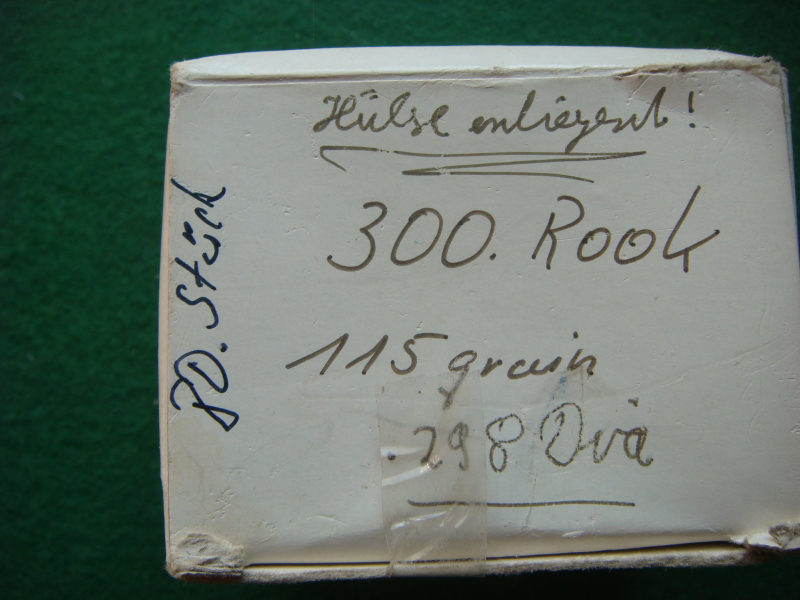 Hülse enliegend!
300. Rook
115 grain
.298 Diä
80. Stück